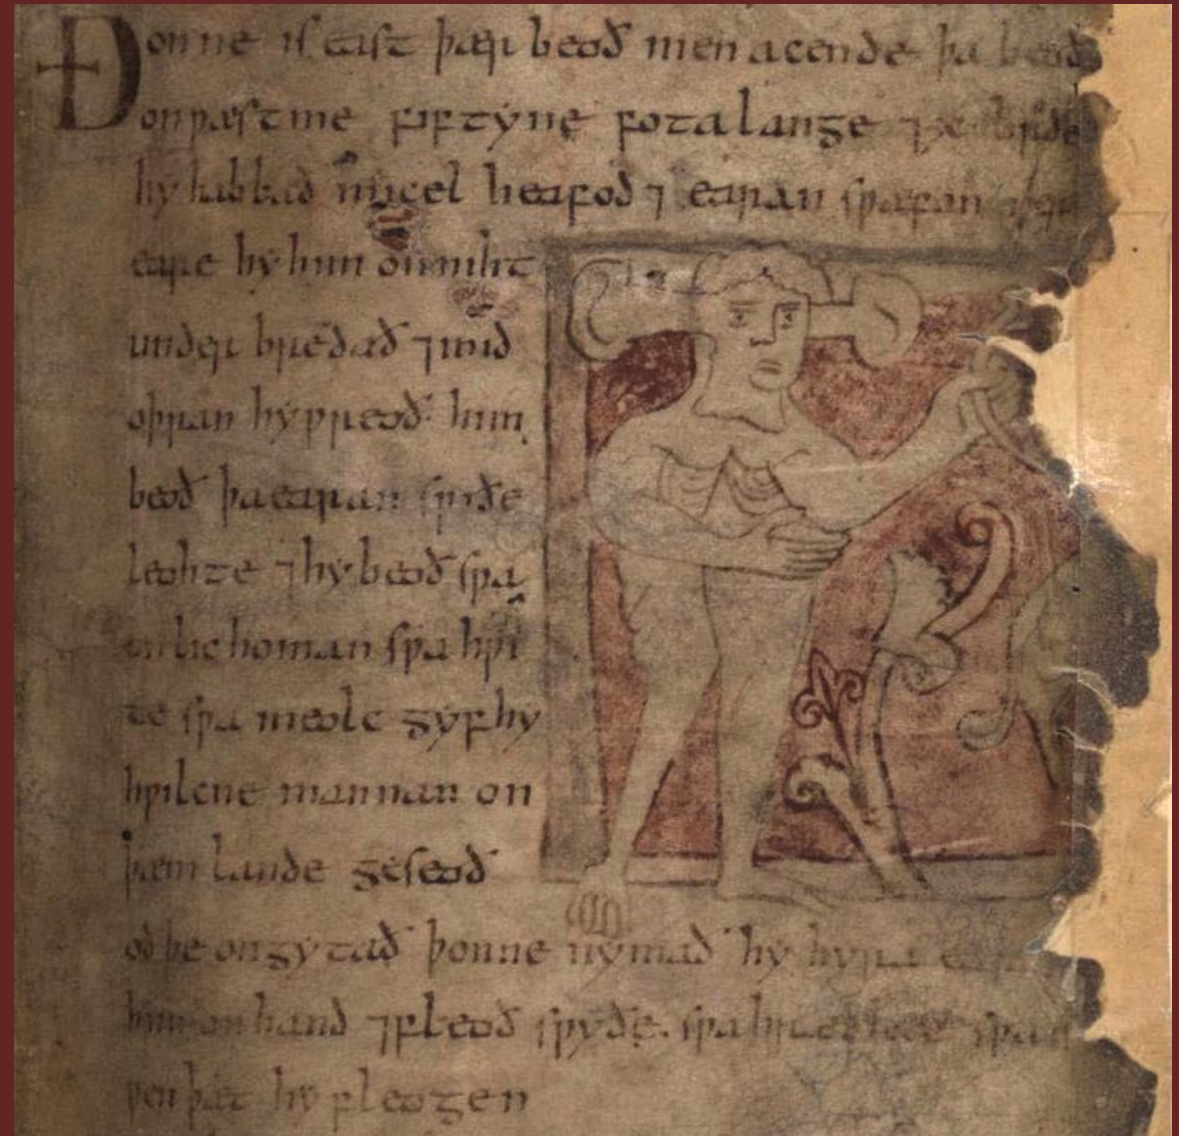 Ðonne is east þær beoð men acende þa beoð
on ƿæstme fiftyne fota lange ⁊ x on brade
hy habbað micel heafod ⁊ earan sƿa fon
eare hy him on niht
under bredað ⁊ mid
oþran hy ƿreoð him
beoð þa earan sƿiðe
leohte ⁊ hy beoð sƿa
on lichoman sƿa hƿi
te sƿa meolc gyf hy
hƿilcne mannan on
þæm lande geseoð
oðþe ongytað þonne nymað hy hyra earan
him on hand ⁊ fleoð sƿyðe. sƿa hrædlice sƿa
ƿen þæt hy fleogen